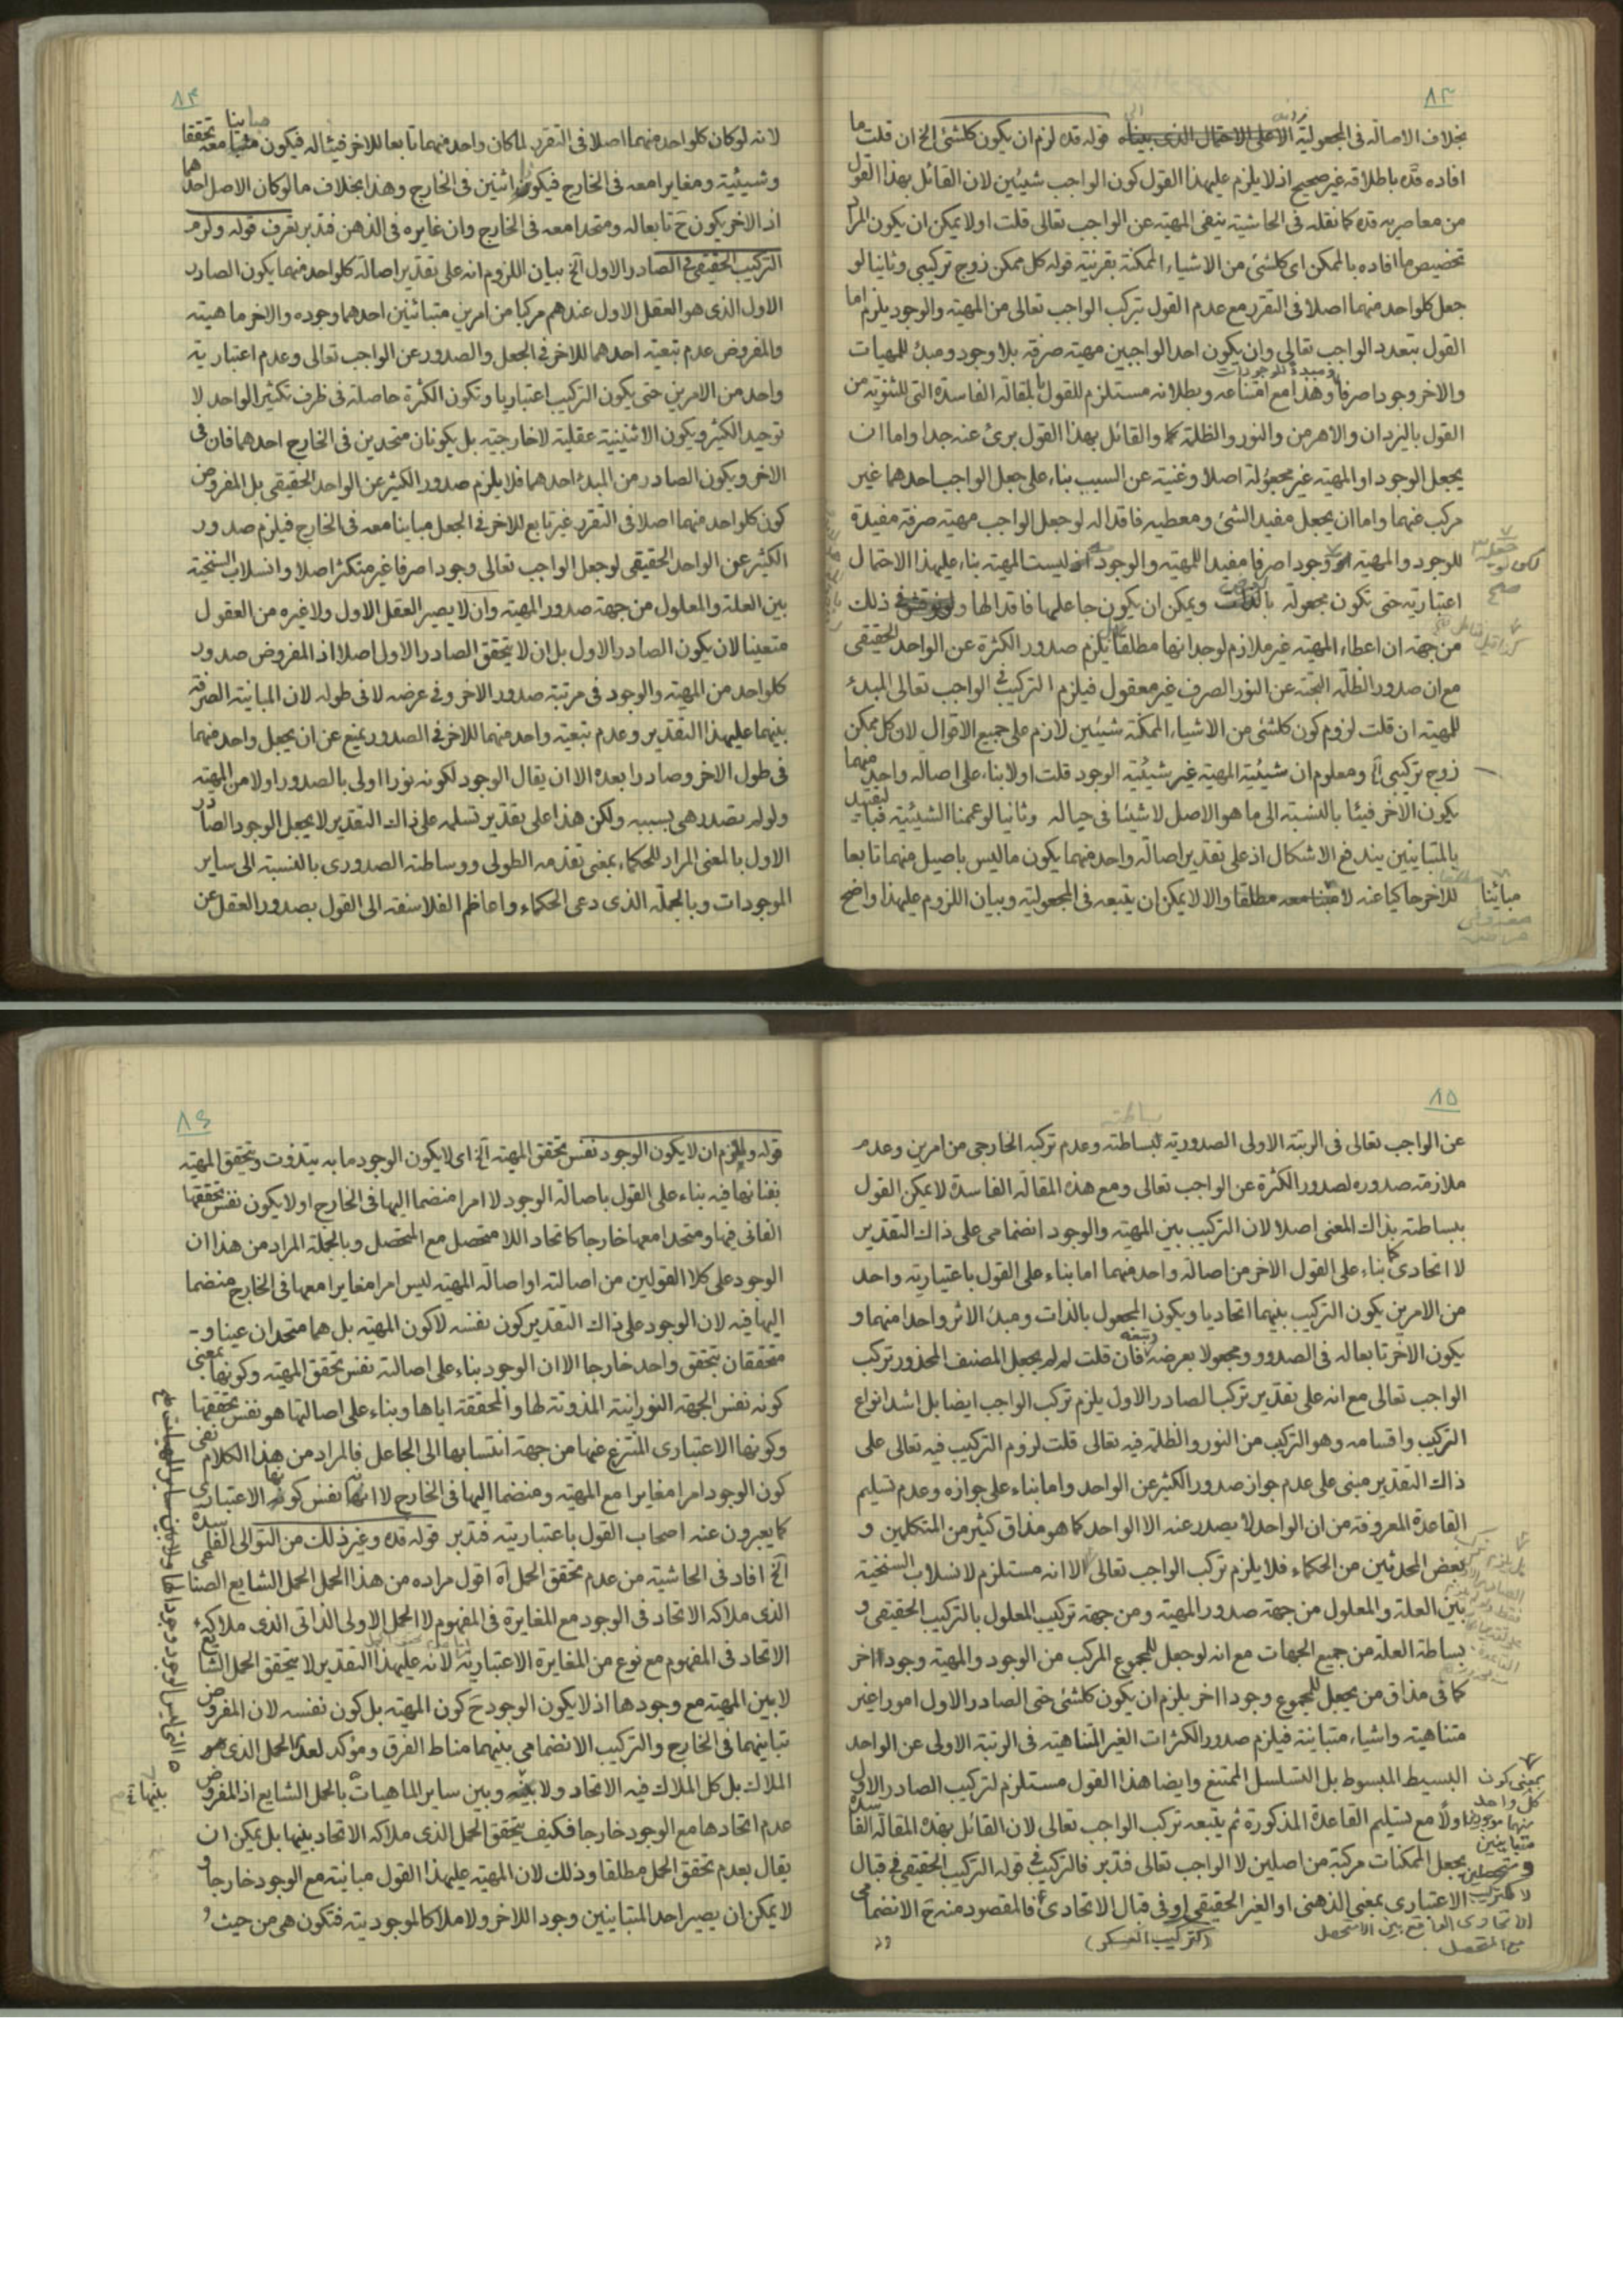 ٨٣
بخلاف الاصالة فى المجعولية الاعلى الاحتمال الذى بيناه قوله قده لزم ان يكون كلشئ الخ ان قلت ما
افاده قده باطلاقه غير صحيح اذ لا يلزم عليهذا القول كون الواجب شيئين لان القائل بهذا القول
من معاصريه قده كما نقله فى الحاشية ينفى المهية عن الواجب تعالى قلت اولا يمكن ان يكون المراد
تخصيص ما افاده بالممكن اى كلشئ من الاشياء الممكنة بقرنية قوله كل ممكن زوج تركيبى وثانيا لو
جعل كلواحد منهما اصلا فى التقرر مع عدم القول بتركب الواجب تعالى من المهية والوجود يلزم اما
القول بتعدد الواجب تعالى وان يكون احد الواجبين مهية صرفة بلا وجود ومبدء للمهيات
والاخر وجودا صرفا ومبدء للوجودات وهذا مع امتناعه وبطلانه مستلزم للقول بالمقالة الفاسدة التى للثنوية من
القول باليزدان والاهرمن والنور والظلمة كما والقائل بهذا القول برئ عنه جدا واما ان
يجعل الوجود او المهية غير مجعولة اصلا وغنية عن السبب بناء على جعل الواجب احدهما غير
مركب عنهما واما ان يجعل مفيد الشئ ومعطيه فاقدا له لو جعل الواجب مهية صرفة مفيدة
للوجود والمهية او وجودا صرفا مفيدا للمهية والوجود اذ ليست المهية بناء عليهذا الاحتمال
اعتبارية حتى تكون مجعولة بالعرض ويمكن ان يكون جاعلها فاقدا لها ولو فرض ذلك
من جهة ان اعطاء المهية غير ملازم لوجدانها مطلقا يلزم صدور الكثرة عن الواحد الحقيقى
مع ان صدور الظلمة البحتة عن النور الصرف غير معقول فيلزم التركيب فى الواجب تعالى المبدء
للمهية ان قلت لزوم كون كلشئ من الاشياء الممكنة شيئين لازم على جميع الاقوال لان كل ممكن
زوج تركيبى ومعلوم ان شيئية المهية غير شيئية الوجود قلت اولا بناء على اصالة واحد منهما
يكون الاخر فيئا بالنسبة الى ما هو الاصل لا شيئا فى حياله وثانيا لو عممنا الشيئية فبالتقييد
بالمتباينين يندفع الاشكال اذ على تقدير اصالة واحد منهما يكون ما ليس باصيل منهما تابعا
للاخر حاكيا عنه لا مباينا معه مطلقا والا لا يمكن ان يتبعه فى المجعولية وبيان اللزوم عليهذا واضح
مباينا
٨٤
لانه لو كان كلواحد منهما اصلا فى التقرر لما كان واحد منهما تابعا للاخر فيئا له فيكون مباينا معه تحققا
وشيئية ومغايرا معه فى الخارج فيكون اثنين فى الخارج وهذا بخلاف ما لو كان الاصل احدهما
اذ الاخر يكون ح تابعا له ومتحدا معه فى الخارج وان غايره فى الذهن فتدبر تعرف قوله ولزم
التركيب الحقيقى فى الصادر الاول الخ بيان اللزوم انه على تقدير اصالة كلواحد منهما يكون الصادر
الاول الذى هو العقل الاول عندهم مركبا من امرين متبائنين احدهما وجوده والاخر ماهيته
والمفروض عدم تبعية احدهما للاخر فى الجعل والصدور عن الواجب تعالى وعدم اعتبارية
واحد من الامرين حتى يكون التركيب اعتباريا وتكون الكثرة حاصلة فى ظرف تكثير الواحد لا
توحيد الكثير ويكون الاثنينية عقلية لا خارجية بل يكونان متحدين فى الخارج احدهما فان فى
الاخر ويكون الصادر من المبدء احدهما فلا يلزم صدور الكثير عن الواحد الحقيقى بل المفروض
كون كلواحد منهما اصلا فى التقرر غير تابع للاخر فى الجعل مباينا معه فى الخارج فيلزم صدور
الكثير عن الواحد الحقيقى لو جعل الواجب تعالى وجودا صرفا غير متكثر اصلا وانسلاب السنخية
بين العلة والمعلول من جهة صدور المهية وان لا يصير العقل الاول ولا غيره من العقول
متعينا لان يكون الصادر الاول بل ان لا يتحقق الصادر الاول اصلا اذ المفروض صدور
كلواحد من المهية والوجود فى مرتبة صدور الاخر وفى عرضه لا فى طوله لان المباينة الصرفة
بينهما عليهذا التقدير وعدم تبعية واحد منهما للاخر فى الصدور يمنع عن ان يجعل واحد منهما
فى طول الاخر وصادرا بعده الا ان يقال الوجود لكونه نورا اولى بالصدور اولا من المهية
ولو لم تصدر هى بسببه ولكن هذا على تقدير تسلمه على ذاك التقدير لا يجعل الوجود الصادر
الاول بالمعنى المراد للحكماء بمعنى تقدمه الطولى ووساطته الصدورى بالنسبة الى ساير
الموجودات وبالجملة الذى دعى الحكماء واعاظم الفلاسفة الى القول بصدور العقل عن
٨٥
عن الواجب تعالى فى الرتبة الاولى الصدورية لبساطته وعدم تركبه الخارجى من امرين وعدم
ملازمة صدوره لصدور الكثرة عن الواجب تعالى ومع هذه المقالة الفاسدة لا يمكن القول
ببساطته بذاك المعنى اصلا لان التركيب بين المهية والوجود انضمامى على ذاك التقدير
لا اتحادى كما بناء على القول الاخر من اصالة واحد منهما اما بناء على القول باعتبارية واحد
من الامرين يكون التركيب بينهما اتحاديا ويكون المجعول بالذات ومبدء الاثر واحدا منهما و
يكون الاخر تابعا له فى الصدور ومجعولا بعرضه وتبعه فان قلت لم لم يجعل المصنف المحذور تركب
الواجب تعالى مع انه على تقدير تركب الصادر الاول يلزم تركب الواجب ايضا بل اشد انواع
التركيب واقسامه وهو التركيب من النور والظلمة فيه تعالى قلت لزوم التركيب فيه تعالى على
ذاك التقدير مبنى على عدم جواز صدور الكثير عن الواحد واما بناء على جوازه وعدم تسليم
القاعدة المعروفة من ان الواحد لا يصدر عنه الا الواحد كما هو مذاق كثير من المتكلمين و
بعض المحدثين من الحكماء فلا يلزم تركب الواجب تعالى الا انه مستلزم لانسلاب السنخية
بين العلة والمعلول من جهة صدور المهية ومن جهة تركيب المعلول بالتركيب الحقيقى و
بساطة العلة من جميع الجهات مع انه لو جعل للمجموع المركب من الوجود والمهية وجودا اخر
كما فى مذاق من يجعل للمجموع وجودا اخر يلزم ان يكون كلشئ حتى الصادر الاول امورا غير
متناهية واشياء متباينة فيلزم صدور الكثرات الغير المتناهية فى الرتبة الاولى عن الواحد
البسيط المبسوط بل التسلسل الممتنع وايضا هذا القول مستلزم لتركيب الصادر الاول
اولا مع تسليم القاعدة المذكورة ثم يتبعه تركب الواجب تعالى لان القائل بهذه المقالة الفاسدة
يجعل الممكنات مركبة من اصلين لا الواجب تعالى فتدبر فالتركيب فى قوله التركيب الحقيقى فى قبال
الاعتبارى بمعنى الذهنى او الغير الحقيقى او فى قبال الاتحادى فالمقصود منه ح الانضمامى
(كتركيب العسكر)
بمعنى كون
كل واحد
منهما موجودا
متباينين
و متحصلين
لا كتركيب
الاتحادى الواقع بين اللامتحصل
مع المتحصل
٨٦
قوله ولزم ان لا يكون الوجود نفس تحقق المهية الخ اى لا يكون الوجود ما به يتذوت وتحقق المهية
بفنائها فيه بناء على القول باصالة الوجود لا امرا منضما اليها فى الخارج او لا يكون نفس تحققها
الفانى فيها ومتحدا معها خارجا كاتحاد اللا متحصل مع المتحصل وبالجملة المراد من هذا ان
الوجود على كلا القولين من اصالته او اصالة المهية ليس امرا مغايرا معها فى الخارج منضما
اليها فيه لان الوجود على ذاك التقدير كون نفسه لا كون المهية بل هما متحدان عينا و-
متحققان بتحقق واحد خارجا الا ان الوجود بناء على اصالته نفس تحقق المهية وكونها بمعنى
كونه نفس الجهة النورانية المذوتة لها والمحققة اياها وبناء على اصالتها هو نفس تحققها
وكونها الاعتبارى المنتزع عنها من جهة انتسابها الى الجاعل فالمراد من هذا الكلام نفى
كون الوجود امرا مغايرا مع المهية ومنضما اليها فى الخارج لا انه نفس كونها الاعتبارى
كما يعبرون عنه اصحاب القول باعتباريته فتدبر قوله قده وغير ذلك من التوالى الفاسدة
الخ افاد فى الحاشية من عدم تحقق الحمل اه اقول مراده من هذا الحمل الحمل الشايع الصناعى
الذى ملاكه الاتحاد فى الوجود مع المغايرة فى المفهوم لا الحمل الاولى الذاتى الذى ملاكه
الاتحاد فى المفهوم مع نوع من المغايرة الاعتبارية لانه عليهذا التقدير لا يتحقق الحمل الشايع
لا بين المهية مع وجودها اذ لا يكون الوجود ح كون المهية بل كون نفسه لان المفروض
تباينهما فى الخارج والتركيب الانضمامى بينهما مناط الفرق ومؤكد لعدم الحمل الذى هو
الملاك بل كل الملاك فيه الاتحاد ولا بينه وبين ساير الماهيات بالحمل الشايع اذ المفروض
عدم اتحادها مع الوجود خارجا فكيف يتحقق الحمل الذى ملاكه الاتحاد بينها بل يمكن ان
يقال بعدم تحقق الحمل مطلقا وذلك لان المهية عليهذا القول مباينة مع الوجود خارجا و
لا يمكن ان يصير احد المتباينين وجود اللاخر ولا ملاكا لموجوديته فتكون هى من حيث
بينها